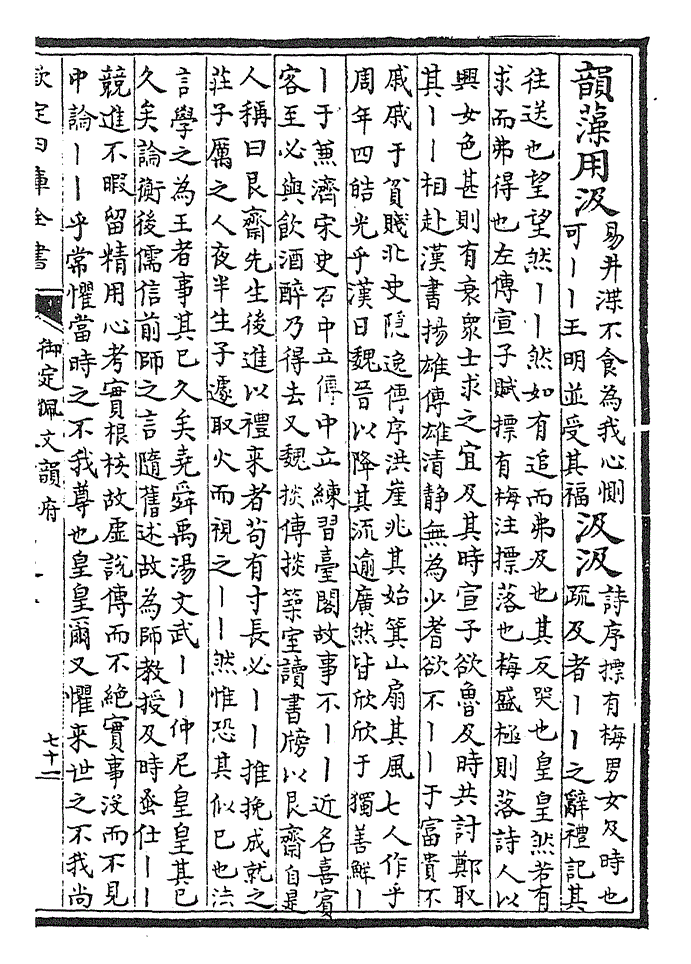 韻藻用汲
易井渫不食為我心惻
可丨丨王明並受其福
汲汲
詩序摽有梅男女及時也
疏及者丨丨之辭禮記其
往送也望望然丨丨然如有追而弗及也其反哭也皇皇然若有
求而弗得也左傳宣子賦摽有梅注摽落也梅盛極則落詩人以
興女色甚則有衰衆士求之宜及其時宣子欲魯及時共討鄭取
其丨丨相赴漢書揚雄傳雄清靜無為少耆欲不丨丨于富貴不
戚戚于貧賤北史隱逸傳序洪崖兆其始箕山扇其風七人作乎
周年四皓光乎漢日魏晉以降其流逾廣然皆欣欣于獨善鮮丨
丨于兼濟宋史石中立傳中立練習臺閣故事不丨丨近名喜賓
客至必與飲酒醉乃得去又魏掞傳掞築室讀書牓以艮齋自是
人稱曰艮齋先生後進以禮来者苟有寸長必丨丨推挽成就之
莊子厲之人夜半生子遽取火而視之丨丨然惟恐其似已也法
言學之為王者事其已久矣堯舜禹湯文武丨丨仲尼皇皇其已
久矣論衡後儒信前師之言隨舊述故為師教授及時蚤仕丨丨
競進不暇留精用心考實根核故虛說傳而不絕實事沒而不見
中論丨丨乎常懼當時之不我尊也皇皇爾又懼来世之不我尚
欽定四庫全書
御定佩文韻府
七十一